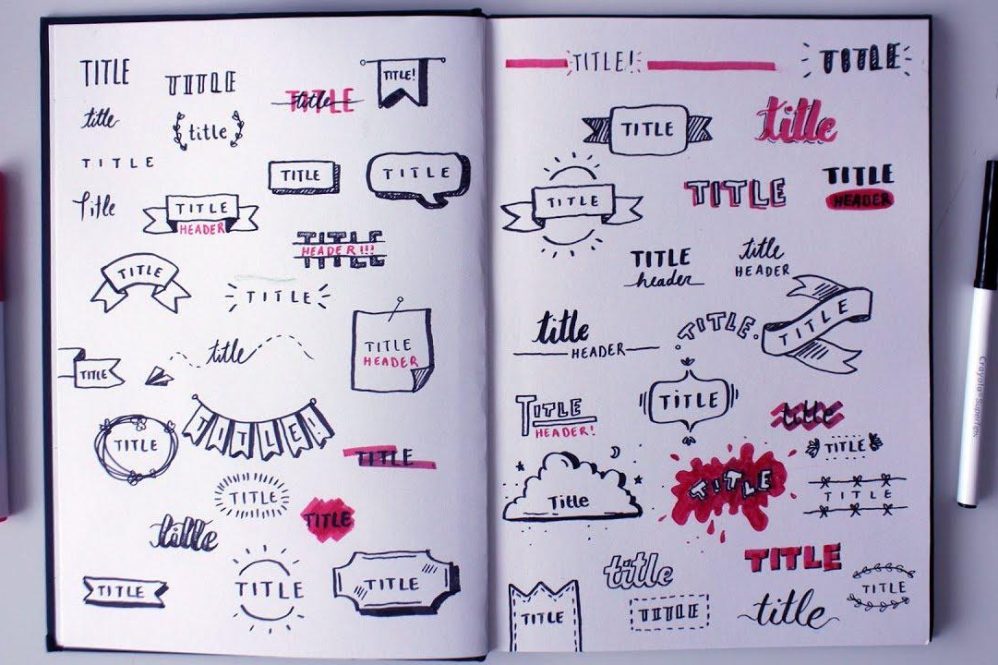 TITLE
TITLE
title
TITLE!
title
title
TITLE
TITLE
TITLE
Title
TITLE
HEADER
TITLE
HEADER!!!
TITLE
TITLE
title
TITLE
HEADER
TITLE
TITLE
TITLE!
TITLE
TITLE
TITLE
title
TITLE
TITLE
TITLE
TITLE!
TITLE
TITLE
title
TITLE
TITLE
TITLE
HEADER
TITLE
header
title
HEADER
title
HEADER
TITLE.
TITLE
TITLE
HEADER!
TITLE
title
TITLE
Title
TITLE
TITLE
title
TITLE
TITLE
TITLE
TITLE
title
Crayola SuperTips